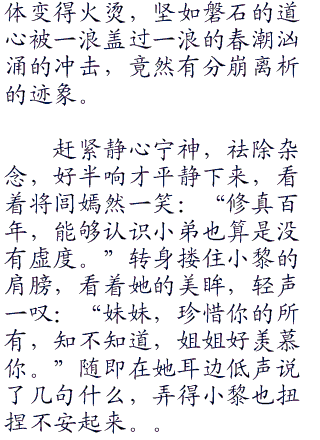 体变得火烫，坚如磐石的道
心被一浪盖过一浪的春潮汹
涌的冲击，竟然有分崩离析
的迹象。
赶紧静心宁神，祛除杂
念，好半响才平静下来，看
着将闾嫣然一笑：“修真百
年，能够认识小弟也算是没
有虚度。”转身搂住小黎的
肩膀，看着她的美眸，轻声
一叹：“妹妹，珍惜你的所
有，知不知道，姐姐好羡慕
你。”随即在她耳边低声说
了几句什么，弄得小黎也扭
捏不安起来。。